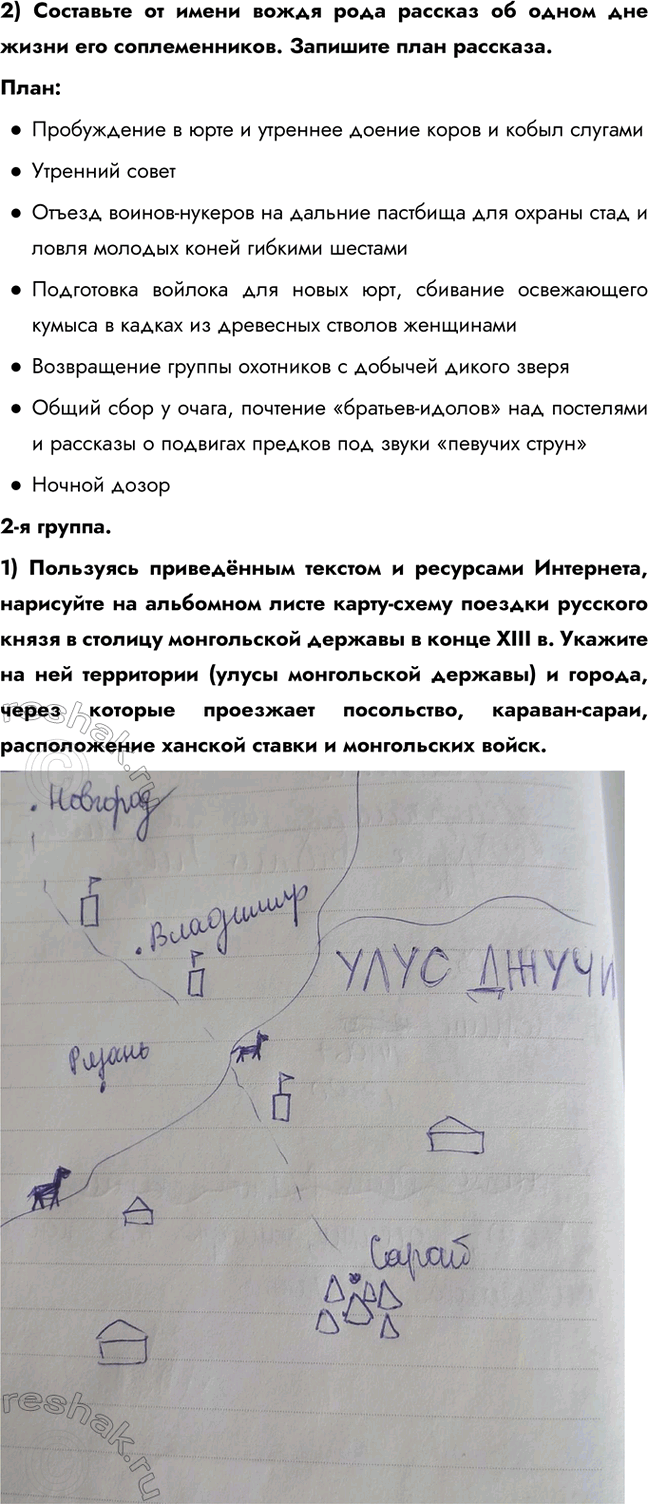 2) Составьте от имени вождя рода рассказ об одном дне
жизни его соплеменников. Запишите план рассказа.
План:
● Пробуждение в юрте и утреннее доение коров и кобыл слугами
● Утренний совет
● Отъезд воинов-нукеров на дальние пастбища для охраны стад и
ловля молодых коней гибкими шестами
● Подготовка войлока для новых юрт, сбивание освежающего
кумыса в кадках из древесных стволов женщинами
● Возвращение группы охотников с добычей дикого зверя
● Общий сбор у очага, почтение «братьев-идолов» над постелями
и рассказы о подвигах предков под звуки «певучих струн»
● Ночной дозор
2-я группа.
1) Пользуясь приведённым текстом и ресурсами Интернета,
нарисуйте на альбомном листе карту-схему поездки русского
князя в столицу монгольской державы в конце XIII в. Укажите
на ней территории (улусы монгольской державы) и города,
через которые проезжает посольство, караван-сараи,
расположение ханской ставки и монгольских войск.
reshak.ru
Новгород
Владимир
УЛУС ДЖУЧИ
Рязань
Сарай
reshak.ru